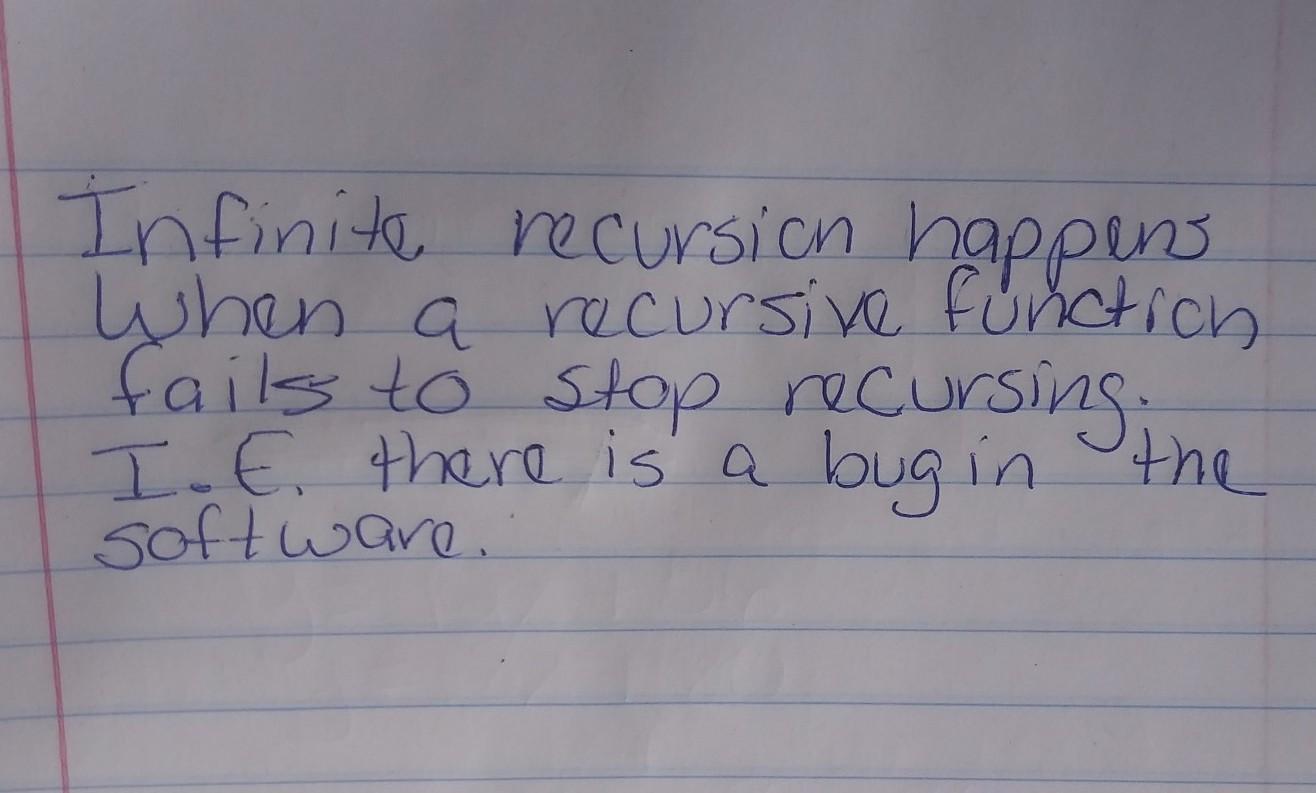 Infinite recursion happens
When a recursive function
fails to stop recursing.
I.E. there is a bug in the
software.